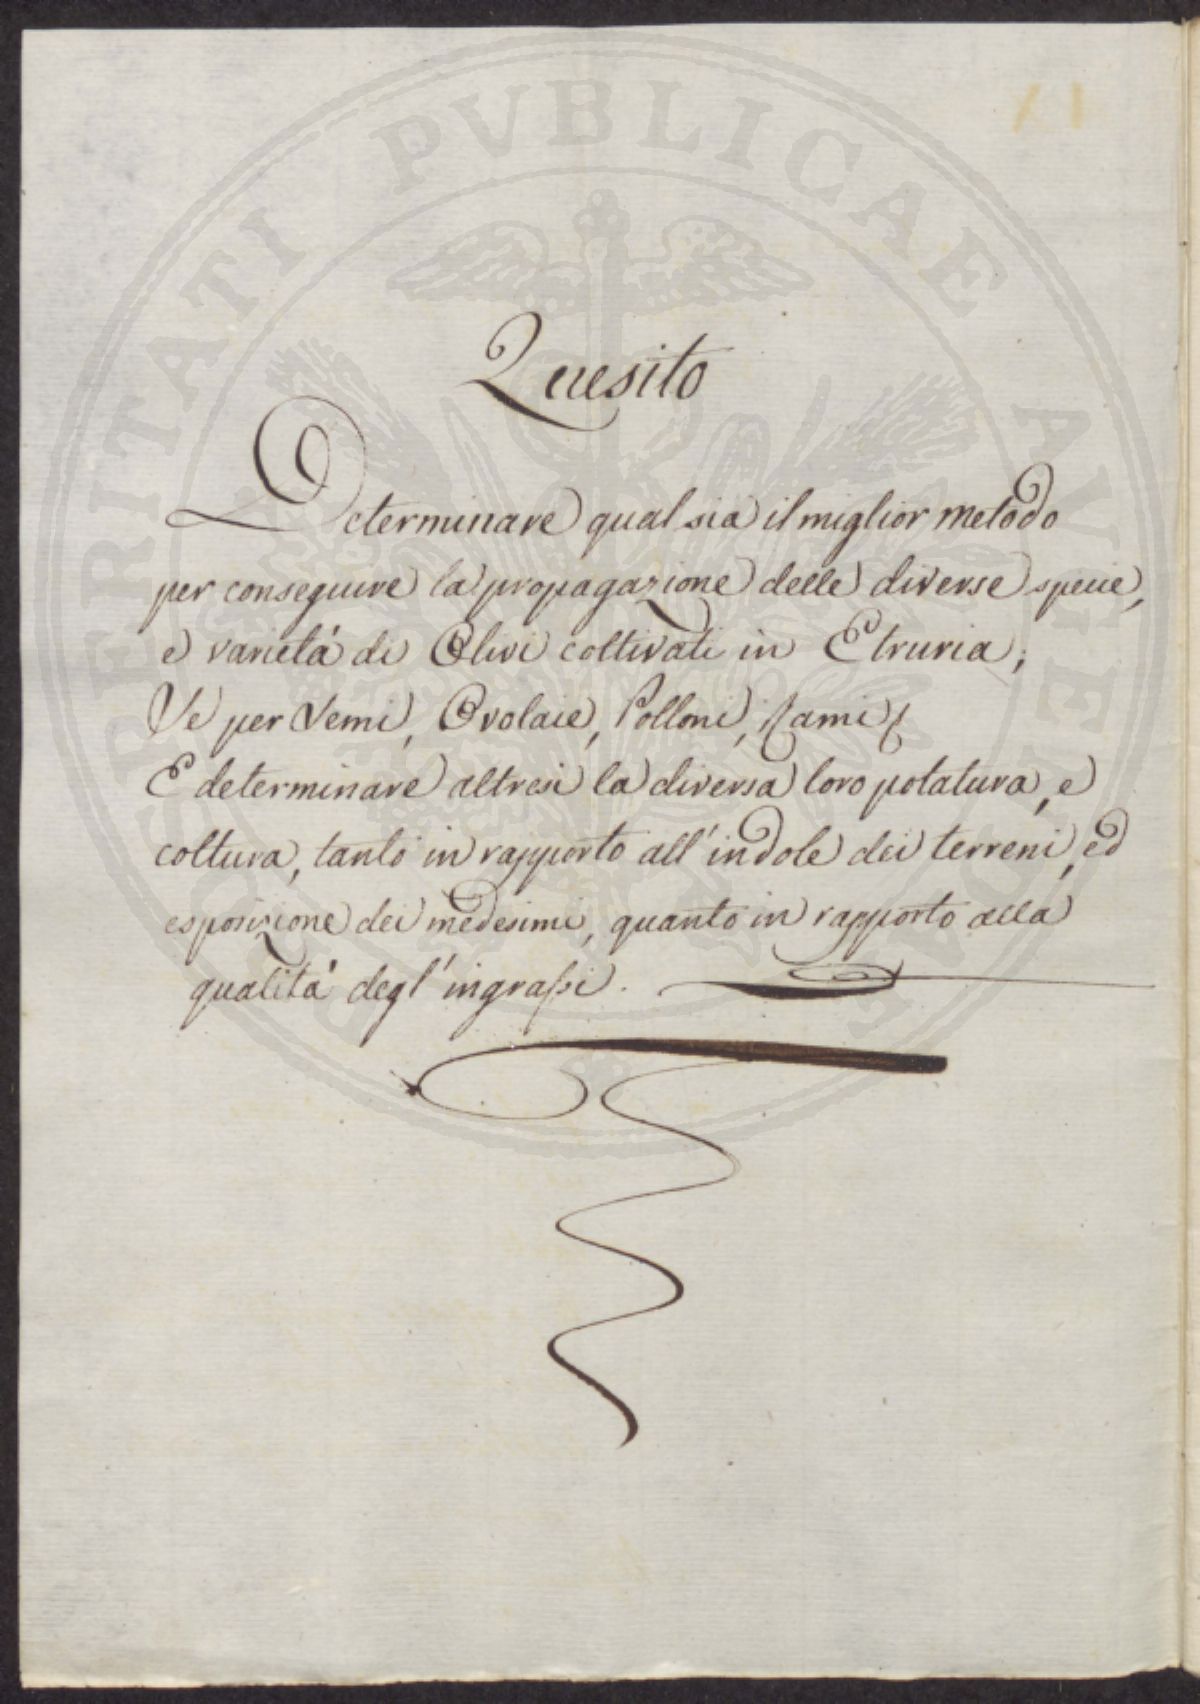 PROSPERITATI PVBLICAE AVGENDAE
Quesito
Determinare qual sia il miglior metodo
per conseguire la propagazione delle diverse specie,
e varietá di Olivi coltivati in Etruria;
Se per Semi, Ovolaie, Polloni, Rami
E determinare altresi la diversa loro potatura, e
coltura, tanto in rapporto all'indole dei terreni, ed
esposizione dei medesimi, quanto in rapporto alla
qualitá degl'ingrassi.